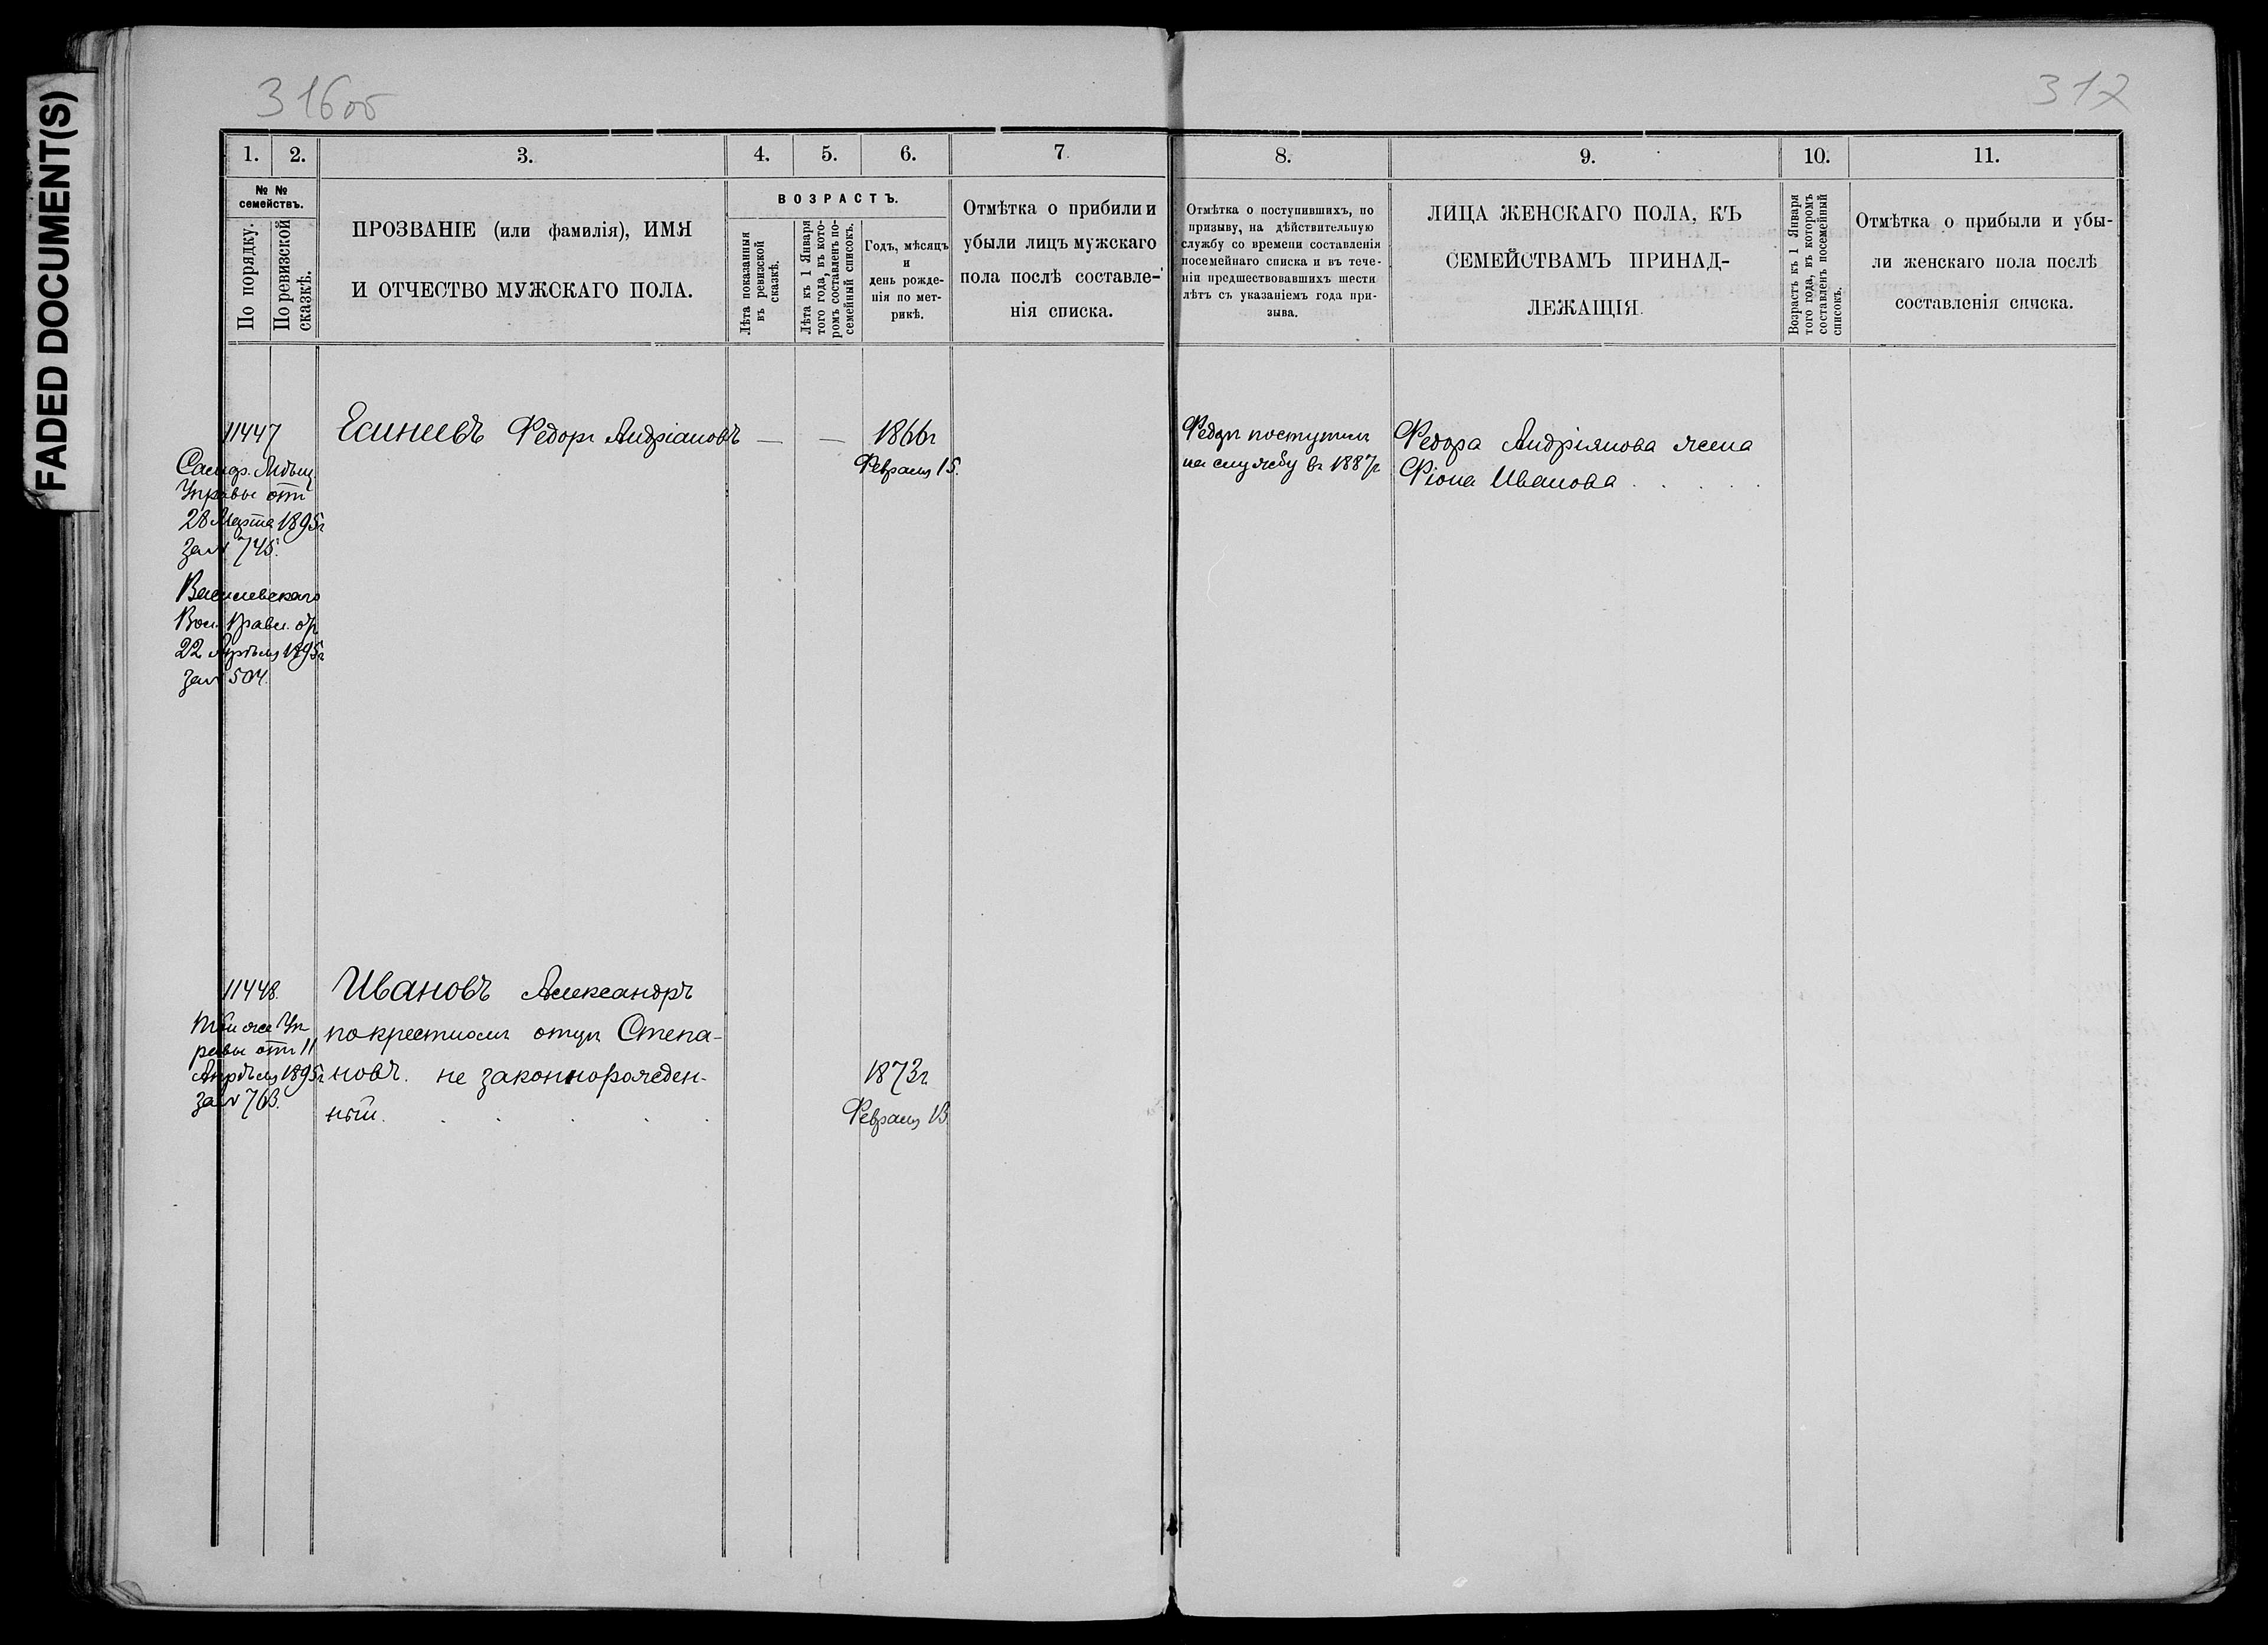 FADED DOCUMENT(S)
316об
317
1.
2.
3.
4.
5.
6.
7.
8.
9.
10.
11.
№ №
семействъ.
По порядку.
По ревизской
сказкѣ.
ПРОЗВАНІЕ (или фамилія), ИМЯ
И ОТЧЕСТВО МУЖСКАГО ПОЛА.
ВОЗРАСТЪ.
Лѣта показанныя
въ ревизской
сказкѣ.
Лѣта къ 1 Января
того года, въ кото-
ромъ составленъ по-
семейный списокъ.
Годъ, мѣсяцъ
и
день рожде-
нія по мет-
рикѣ.
Отмѣтка о прибыли и
убыли лицъ мужскаго
пола послѣ составле-
нія списка.
Отмѣтка о поступившихъ, по
призыву, на дѣйствительную
службу со времени составленія
посемейнаго списка и въ тече-
ніи предшествовавшихъ шести
лѣтъ съ указаніемъ года при-
зыва.
ЛИЦА ЖЕНСКАГО ПОЛА, КЪ
СЕМЕЙСТВАМЪ ПРИНАД-
ЛЕЖАЩІЯ.
Возрастъ къ 1 Января
того года, въ которомъ
составленъ посемейный
списокъ.
Отмѣтка о прибыли и убы-
ли женскаго пола послѣ
составленія списка.
11447
Управы отъ
28 Марта 1895г
за № 745.
Василевскаго
Вол. Правл. от
22 Апрѣля 1895г
за № 504.
Федоръ Андріановъ — —
1866г
Февраля 15.
Федоръ поступилъ
на службу въ 1887г
Федора Андріянова жена
Фіона Иванова . . . . .
11448.
Той же Уп
равы отъ 11
Апрѣля 1895г
за № 763.
Ивановъ Александръ
по крестному отцу Степа-
новъ. не законнорожден-
ный. . . . . .
1873г
Февраля 13.